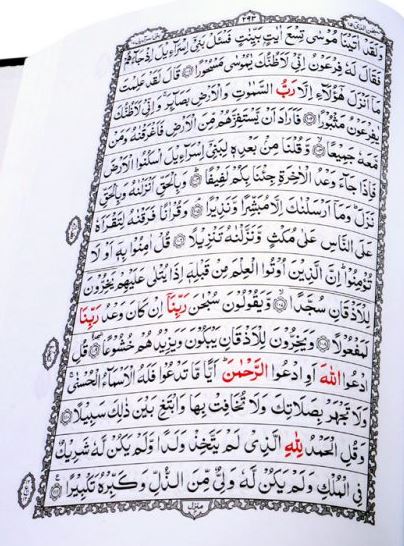 ٢٩٣
وَلَقَدْ اٰتَيْنَا مُوْسٰى تِسْعَ اٰيٰتٍۭ بَيِّنٰتٍ فَسْـَٔلْ بَنِيْٓ اِسْرَآءِيْلَ اِذْ جَآءَهُمْ
فَقَالَ لَهٗ فِرْعَوْنُ اِنِّيْ لَاَظُنُّكَ يٰمُوْسٰى مَسْحُوْرًا ۝ قَالَ لَقَدْ عَلِمْتَ
مَآ اَنْزَلَ هٰٓؤُلَآءِ اِلَّا رَبُّ السَّمٰوٰتِ وَالْاَرْضِ بَصَآئِرَ ۚ وَاِنِّيْ لَاَظُنُّكَ
يٰفِرْعَوْنُ مَثْبُوْرًا ۝ فَاَرَادَ اَنْ يَّسْتَفِزَّهُمْ مِّنَ الْاَرْضِ فَاَغْرَقْنٰهُ وَمَنْ
مَّعَهٗ جَمِيْعًا ۝ وَّقُلْنَا مِنْۢ بَعْدِهٖ لِبَنِيْٓ اِسْرَآءِيْلَ اسْكُنُوا الْاَرْضَ
فَاِذَا جَآءَ وَعْدُ الْاٰخِرَةِ جِئْنَا بِكُمْ لَفِيْفًا ۝ وَبِالْحَقِّ اَنْزَلْنٰهُ وَبِالْحَقِّ
نَزَلَ ۗ وَمَآ اَرْسَلْنٰكَ اِلَّا مُبَشِّرًا وَّنَذِيْرًا ۝ وَقُرْاٰنًا فَرَقْنٰهُ لِتَقْرَاَهٗ
عَلَى النَّاسِ عَلٰى مُكْثٍ وَّنَزَّلْنٰهُ تَنْزِيْلًا ۝ قُلْ اٰمِنُوْا بِهٖٓ اَوْ لَا
تُؤْمِنُوْا ۗ اِنَّ الَّذِيْنَ اُوْتُوا الْعِلْمَ مِنْ قَبْلِهٖٓ اِذَا يُتْلٰى عَلَيْهِمْ يَخِرُّوْنَ
لِلْاَذْقَانِ سُجَّدًا ۝ وَّيَقُوْلُوْنَ سُبْحٰنَ رَبِّنَآ اِنْ كَانَ وَعْدُ رَبِّنَا
لَمَفْعُوْلًا ۝ وَيَخِرُّوْنَ لِلْاَذْقَانِ يَبْكُوْنَ وَيَزِيْدُهُمْ خُشُوْعًا ۝ قُلِ
ادْعُوا اللّٰهَ اَوِ ادْعُوا الرَّحْمٰنَ ۗ اَيًّا مَّا تَدْعُوْا فَلَهُ الْاَسْمَآءُ الْحُسْنٰى ۚ
وَلَا تَجْهَرْ بِصَلَاتِكَ وَلَا تُخَافِتْ بِهَا وَابْتَغِ بَيْنَ ذٰلِكَ سَبِيْلًا ۝
وَقُلِ الْحَمْدُ لِلّٰهِ الَّذِيْ لَمْ يَتَّخِذْ وَلَدًا وَّلَمْ يَكُنْ لَّهٗ شَرِيْكٌ
فِي الْمُلْكِ وَلَمْ يَكُنْ لَّهٗ وَلِيٌّ مِّنَ الذُّلِّ وَكَبِّرْهُ تَكْبِيْرًا ۝